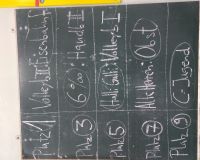 Platz 1
Volley III : Eisenbahn
Platz 3
6%: Handb II
Platz 5
Halli Galli : Volleyb I
Platz 7
Alte Herren : Obst
Platz 9
C-Jugend